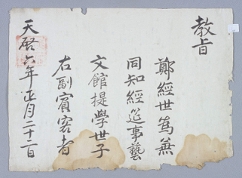 敎旨
鄭經世爲兼
同知經筵事藝
文館提學世子
右副賓客者
天啓六年正月二十二日